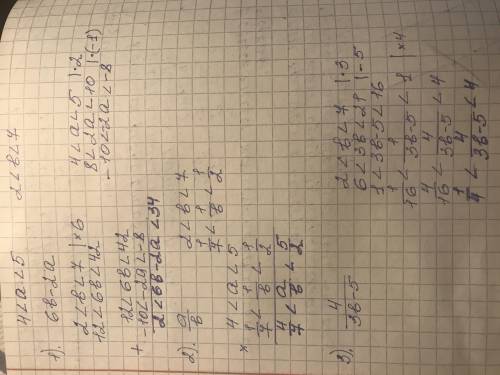 4 < a < 5    2 < b < 7
1). 6b - 2a
2 < b < 7 | ×6    4 < a < 5 | ·2
12 < 6b < 42    8 < 2a < 10 | ·(-1)
-10 < -2a < -8
+ 12 < 6b < 42
-10 < -2a < -8
2 < 6b - 2a < 34
2). a/b    2 < b < 7
1/7 < 1/b < 1/2
× 4 < a < 5
1/7 < 1/b < 1/2
4/7 < a/b < 5/2
3). 4/(3b-5)    2 < b < 7 | ·3
6 < 3b < 21 | -5
1 < 3b - 5 < 16
1/16 < 1/(3b-5) < 1 | ×4
4/16 < 4/(3b-5) < 4
1/4 < 4/(3b-5) < 4